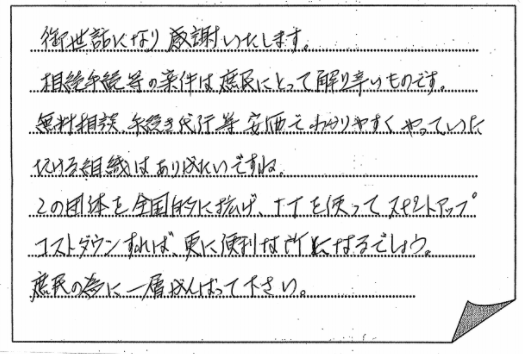 御世話になり感謝いたします。
相続手続等の案件は庶民にとって解り辛いものです。
無料相談、手続き代行等安価でわかりやすくやっていった
だける組織はありがたいですね。
この団体を全国的に拡げ、ITを使ってスピードアップ
コストダウンすれば、更に便利な所になるでしょう。
庶民の為に一層がんばって下さい。